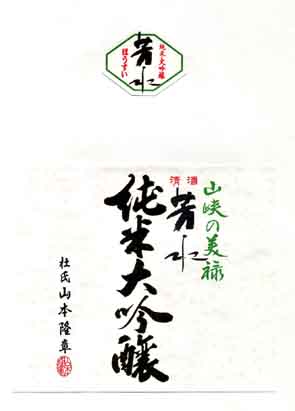 純米大吟醸
芳水
ほうすい
山峡の美禄
清酒
芳水
純米大吟醸
杜氏 山本隆章